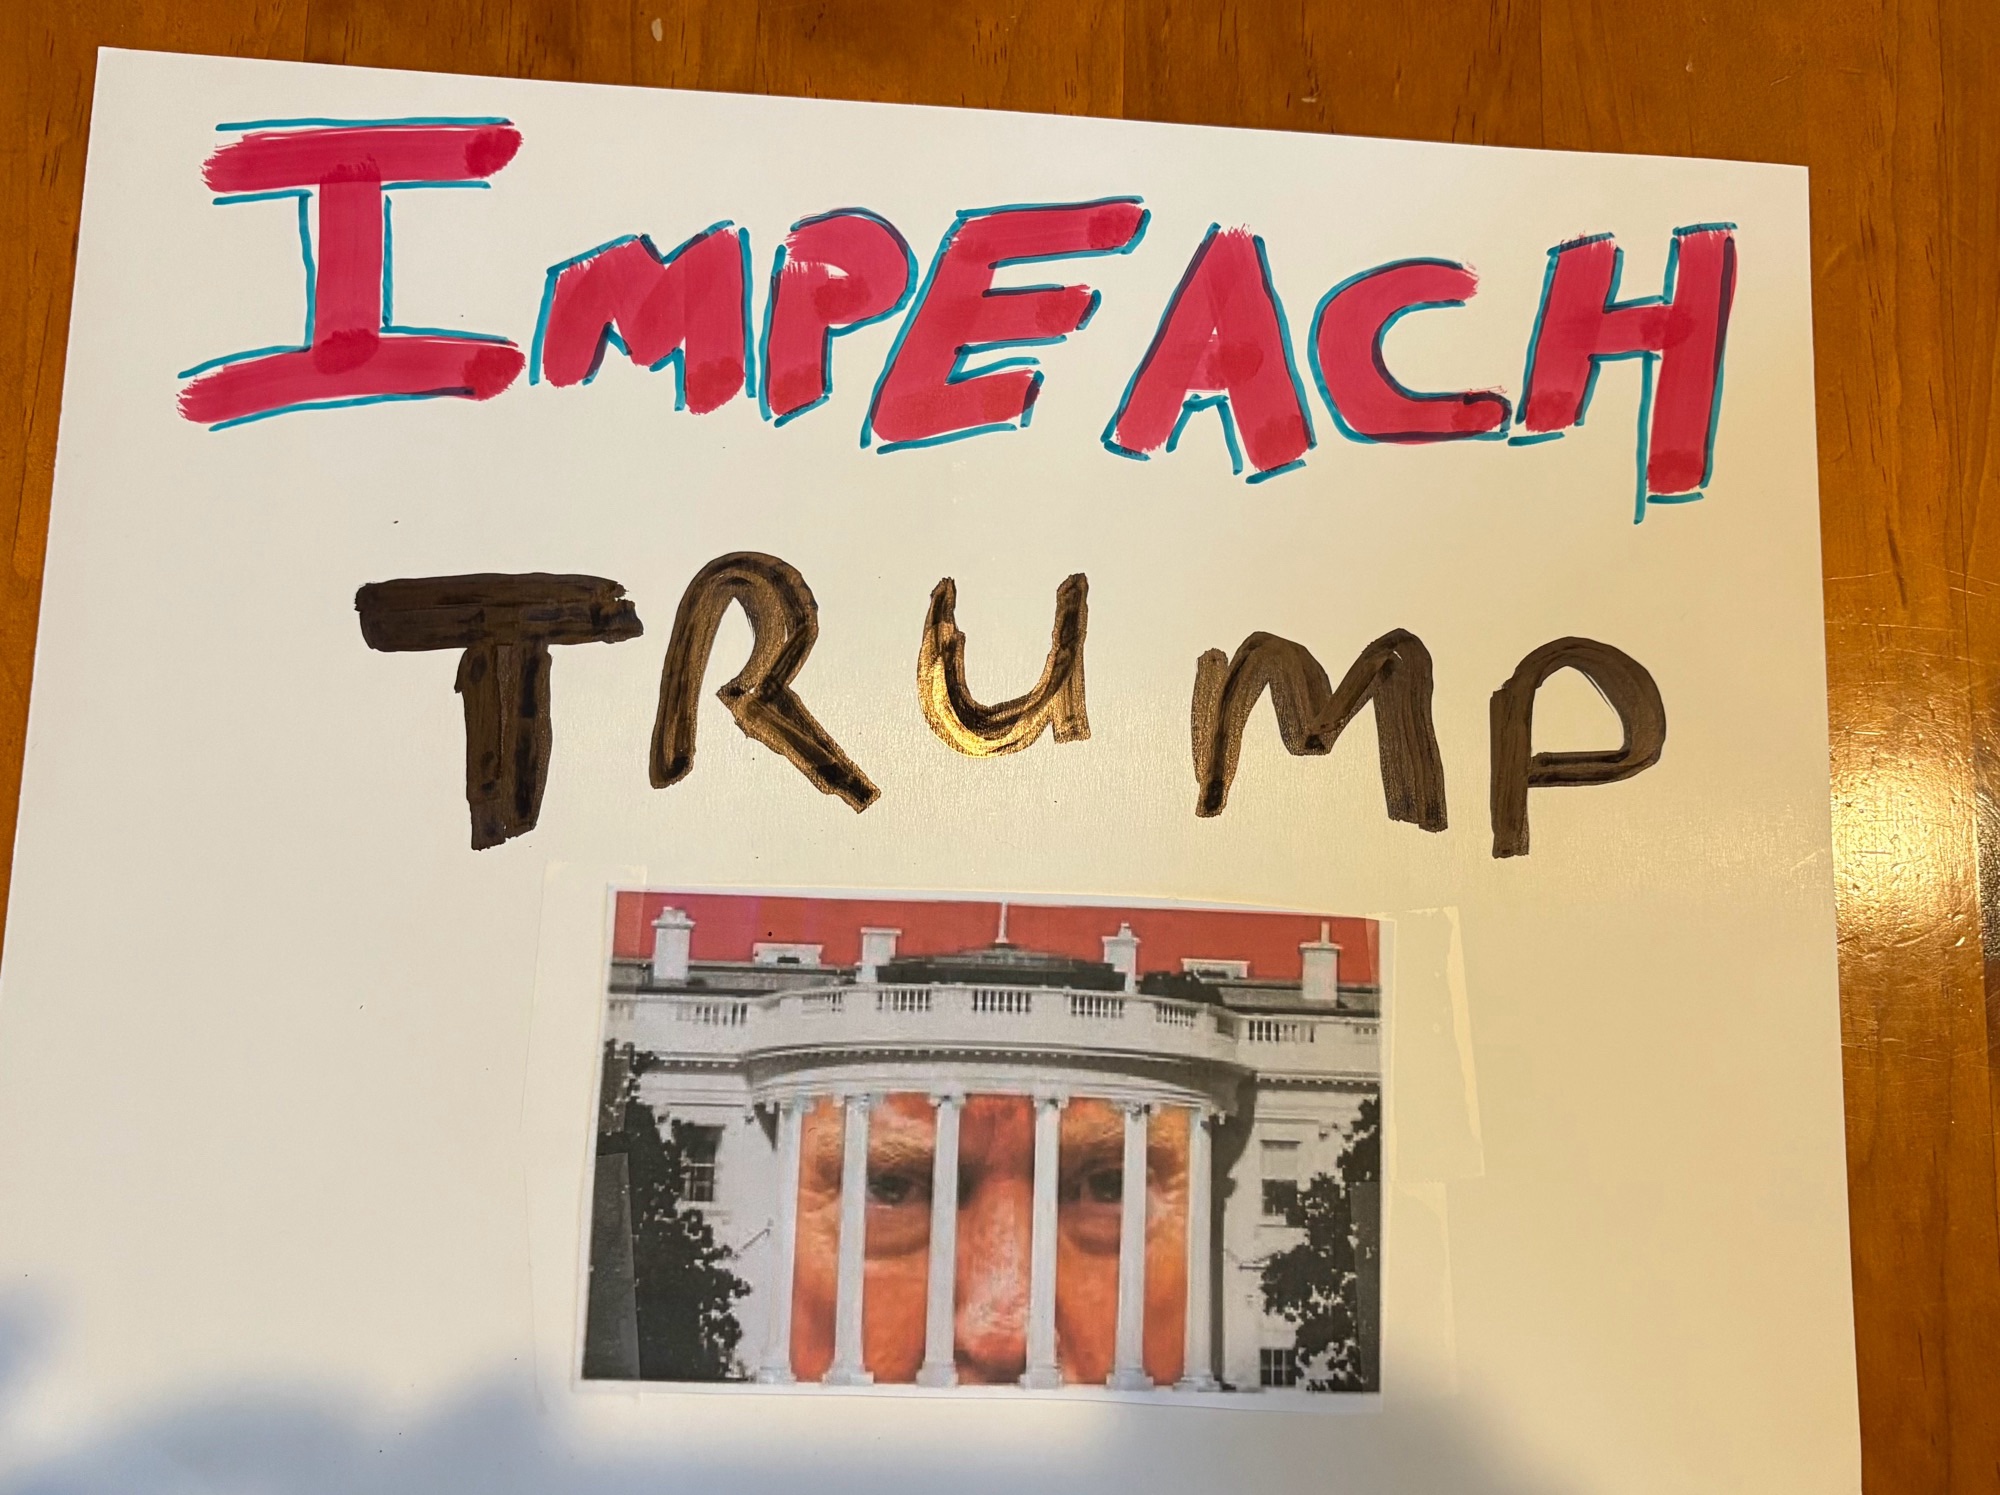 IMPEACH
TRUMP